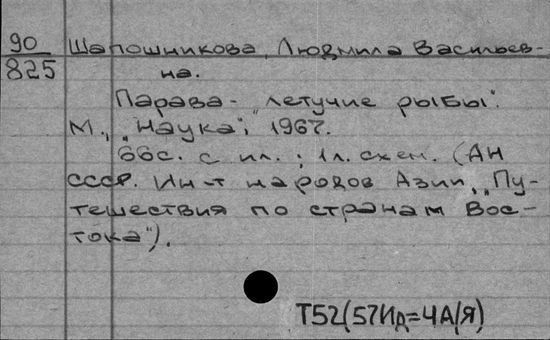 90 Шапошникова, Людмила Васильев-
825 на.
Парава - "летучие рыбы".
М., "Наука", 1967.
66с. с ил.; 1л. схем. (АН
СССР. Ин-т народов Азии. "Пу-
тешествия по странам Вос-
тока").
Т52(57Ид=4А/Я)